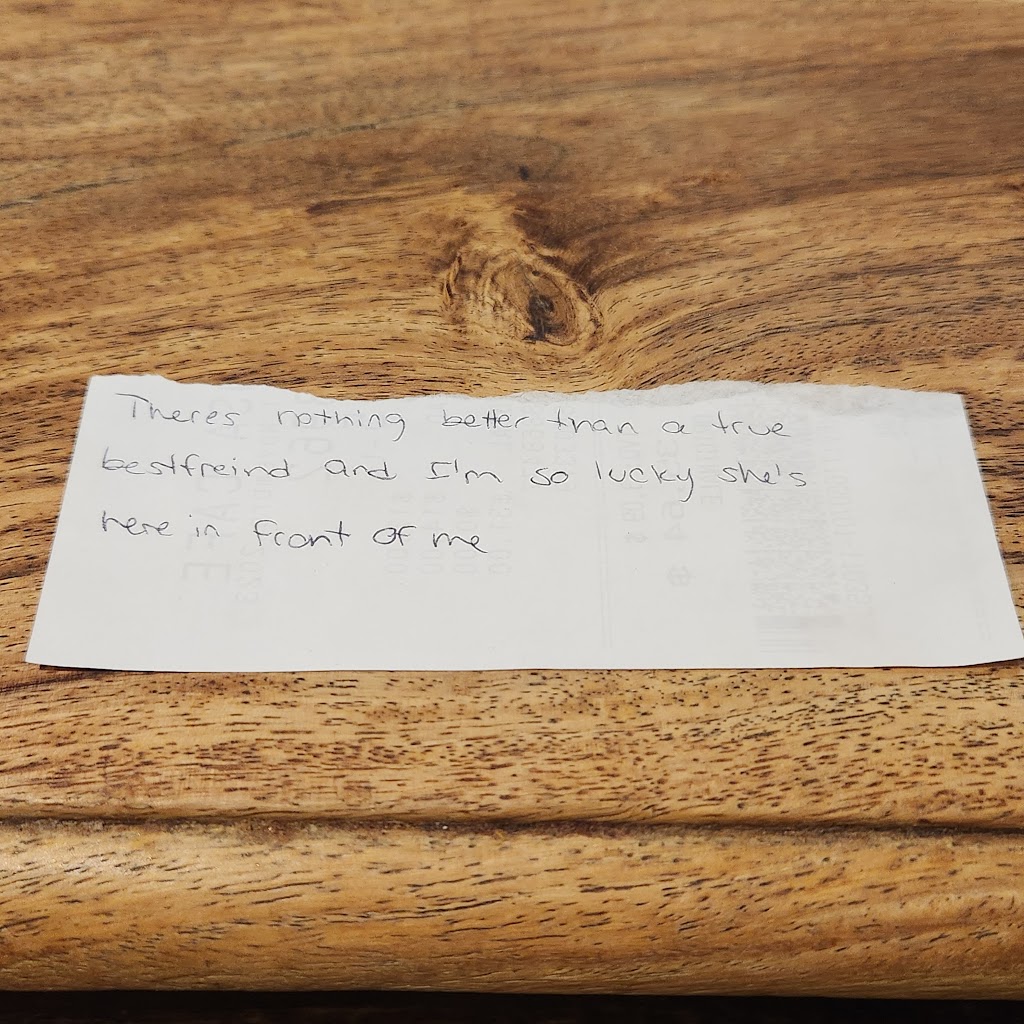 Theres nothing better than a true
bestfreind and I'm so lucky she's
here in front of me